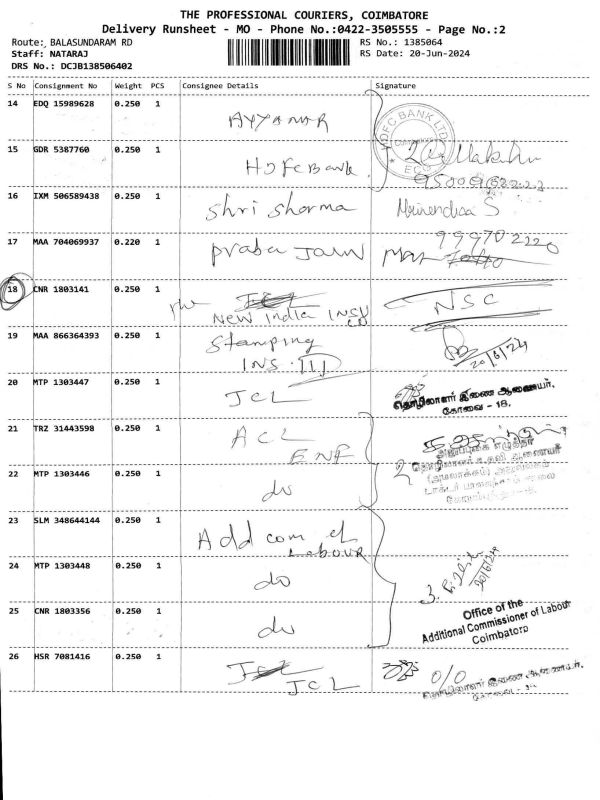 THE PROFESSIONAL COURIERS, COIMBATORE
Delivery Runsheet - MO - Phone No.:0422-3505555 - Page No.:2
Route: BALASUNDARAM RD
RS No.: 1385064
Staff: NATARAJ
RS Date: 20-Jun-2024
DRS No.: DCJB138506402
S No Consignment No Weight PCS Consignee Details Signature
14 EDQ 15989628 0.250 1 AYYANAR
HDFC BANK LTD
15 GDR 5387760 0.250 1 HDFC Bank
16 IXM 506589438 0.250 1 Shri Sharma
17 MAA 704069937 0.220 1 Praba Jain
99970 2220
18 CNR 1803141 0.250 1 New India INSU CO
NSC
19 MAA 866364393 0.250 1 Stamping
INS. III
20/6/24
20 MTP 1303447 0.250 1 JCL
தொழிலாளர் இணை ஆணையர்,
கோவை - 18.
21 TRZ 31443598 0.250 1 ACL
ENF
22 MTP 1303446 0.250 1 do
2
23 SLM 348644144 0.250 1 Add com of
LABOUR
24 MTP 1303448 0.250 1 do
3.
20/6/24
25 CNR 1803356 0.250 1 do
Office of the
Additional Commissioner of Labour
Coimbatore
26 HSR 7081416 0.250 1 JCL
0/0
தொழிலாளர் இணை ஆணையர்,